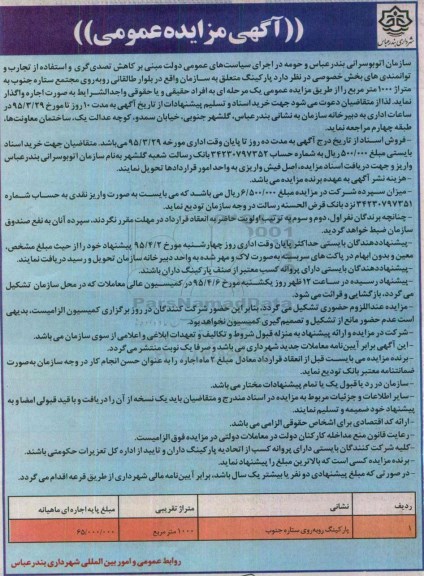 ((آگهی مزایده عمومی))
شهرداری بندرعباس
سازمان اتوبوسرانی بندرعباس و حومه در اجرای سیاست‌های عمومی دولت مبنی بر کاهش تصدی‌گری و استفاده از تجارب و
توانمندی های بخش خصوصی در نظر دارد پارکینگ متعلق به سازمان واقع در بلوار طالقانی روبه‌روی مجتمع ستاره جنوب به
متراژ ۱۰۰۰ متر مربع را از طریق مزایده عمومی یک مرحله ای به افراد حقیقی و یا حقوقی واجدالشرایط به صورت اجاره واگذار
نماید. لذا از متقاضیان دعوت می‌شود جهت خرید اسناد و تسلیم پیشنهادات از تاریخ آگهی به مدت ۱۰ روز تا مورخ ۹۵/۳/۲۹ در
ساعات اداری به دبیرخانه سازمان به نشانی بندرعباس، گلشهر جنوبی، خیابان سمدو، کوچه عدالت یک، ساختمان معاونت‌ها،
طبقه چهارم مراجعه نماید.
- فروش اسناد از تاریخ درج آگهی به مدت ده روز تا پایان وقت اداری مورخه ۹۵/۳/۲۹ می‌باشد. متقاضیان جهت خرید اسناد
بایستی مبلغ ۵۰۰/۰۰۰ ریال به شماره حساب ۳۴۲۳۰۷۹۷۳۵۲ بانک رسالت شعبه گلشهر به نام سازمان اتوبوسرانی بندرعباس
واریز و جهت دریافت اسناد مزایده، اصل فیش واریزی به واحد امور قراردادها تحویل نمایند.
- هزینه نشر آگهی به عهده برنده مزایده می باشد.
- میزان سپرده شرکت در مزایده مبلغ ۶/۵۰۰/۰۰۰ ریال می باشد که می بایست به صورت واریز نقدی به حساب شماره
۳۴۲۳۰۷۹۷۳۵۱ نزد بانک قرض الحسنه رسالت در وجه سازمان تودیع نماید.
- چنانچه برندگان نفر اول، دوم و سوم به ترتیب اولویت حاضر به انعقاد قرارداد در مهلت مقرر نگردند، سپرده آنان به نفع صندوق
سازمان ضبط خواهد گردید.
- پیشنهاددهندگان بایستی حداکثر پایان وقت اداری روز چهارشنبه مورخ ۹۵/۴/۲ پیشنهاد خود را از حیث مبلغ مشخص،
معین و بدون ابهام در پاکت های سربسته به صورت لاک و مهر شده به واحد دبیرخانه سازمان تحویل و رسید دریافت نمایند.
- پیشنهاددهندگان بایستی دارای پروانه کسب معتبر از صنف پارکینگ داران باشند.
- پیشنهاد رسیده در ساعت ۱۲ ظهر روز یکشنبه مورخ ۹۵/۴/۶ در کمیسیون عالی معاملات که در محل سازمان تشکیل
می گردد، بازگشایی و قرائت می شود.
- مزایده عنداللزوم حضوری تشکیل می گردد، بنابر این حضور شرکت کنندگان در روز برگزاری کمیسیون الزامیست، بدیهی
است عدم حضور مانع از تشکیل و تصمیم گیری کمیسیون نخواهد بود.
- شرکت در مزایده و ارائه پیشنهاد به منزله قبول شروط و تکالیف و تعهدات ابلاغی و اعلامی از سوی سازمان می باشد.
- این آگهی برابر آیین‌نامه معاملات جدید شهرداری می باشد و صرفا یک نوبت منتشر می گردد.
- برنده مزایده می بایست قبل از انعقاد قرارداد معادل مبلغ ۲ ماه اجاره را به عنوان حسن انجام کار در وجه سازمان به صورت
ضمانتنامه معتبر بانک تودیع نماید.
- سازمان در رد یا قبول یک یا تمام پیشنهادات مختار می باشد.
- سایر اطلاعات و جزئیات مربوط به مزایده در اسناد مندرج و متقاضیان باید یک نسخه از آن را دریافت و با قید قبولی امضا و به
پیشنهاد خود ضمیمه و تسلیم نمایند.
- ارائه کد اقتصادی برای اشخاص حقوقی الزامی می باشد.
- رعایت قانون منع مداخله کارکنان دولت در معاملات دولتی در مزایده فوق الزامیست.
- کلیه شرکت کنندگان بایستی دارای پروانه کسب از اتحادیه پارکینگ داران و تایید از اداره کل تعزیرات حکومتی باشند.
- برنده مزایده کسی است که بالاترین مبلغ را پیشنهاد نماید.
- در صورتی که مبلغ پیشنهادی دو نفر یا بیشتر یک سال باشد، برابر آیین‌نامه مالی شهرداری از طریق قرعه اقدام می گردد.
ردیف نشانی متراژ تقریبی مبلغ پایه اجاره‌ای ماهیانه
۱ پارکینگ روبه‌روی ستاره جنوب ۱۰۰۰ متر مربع ۶۵/۰۰۰/۰۰۰
روابط عمومی و امور بین المللی شهرداری بندرعباس